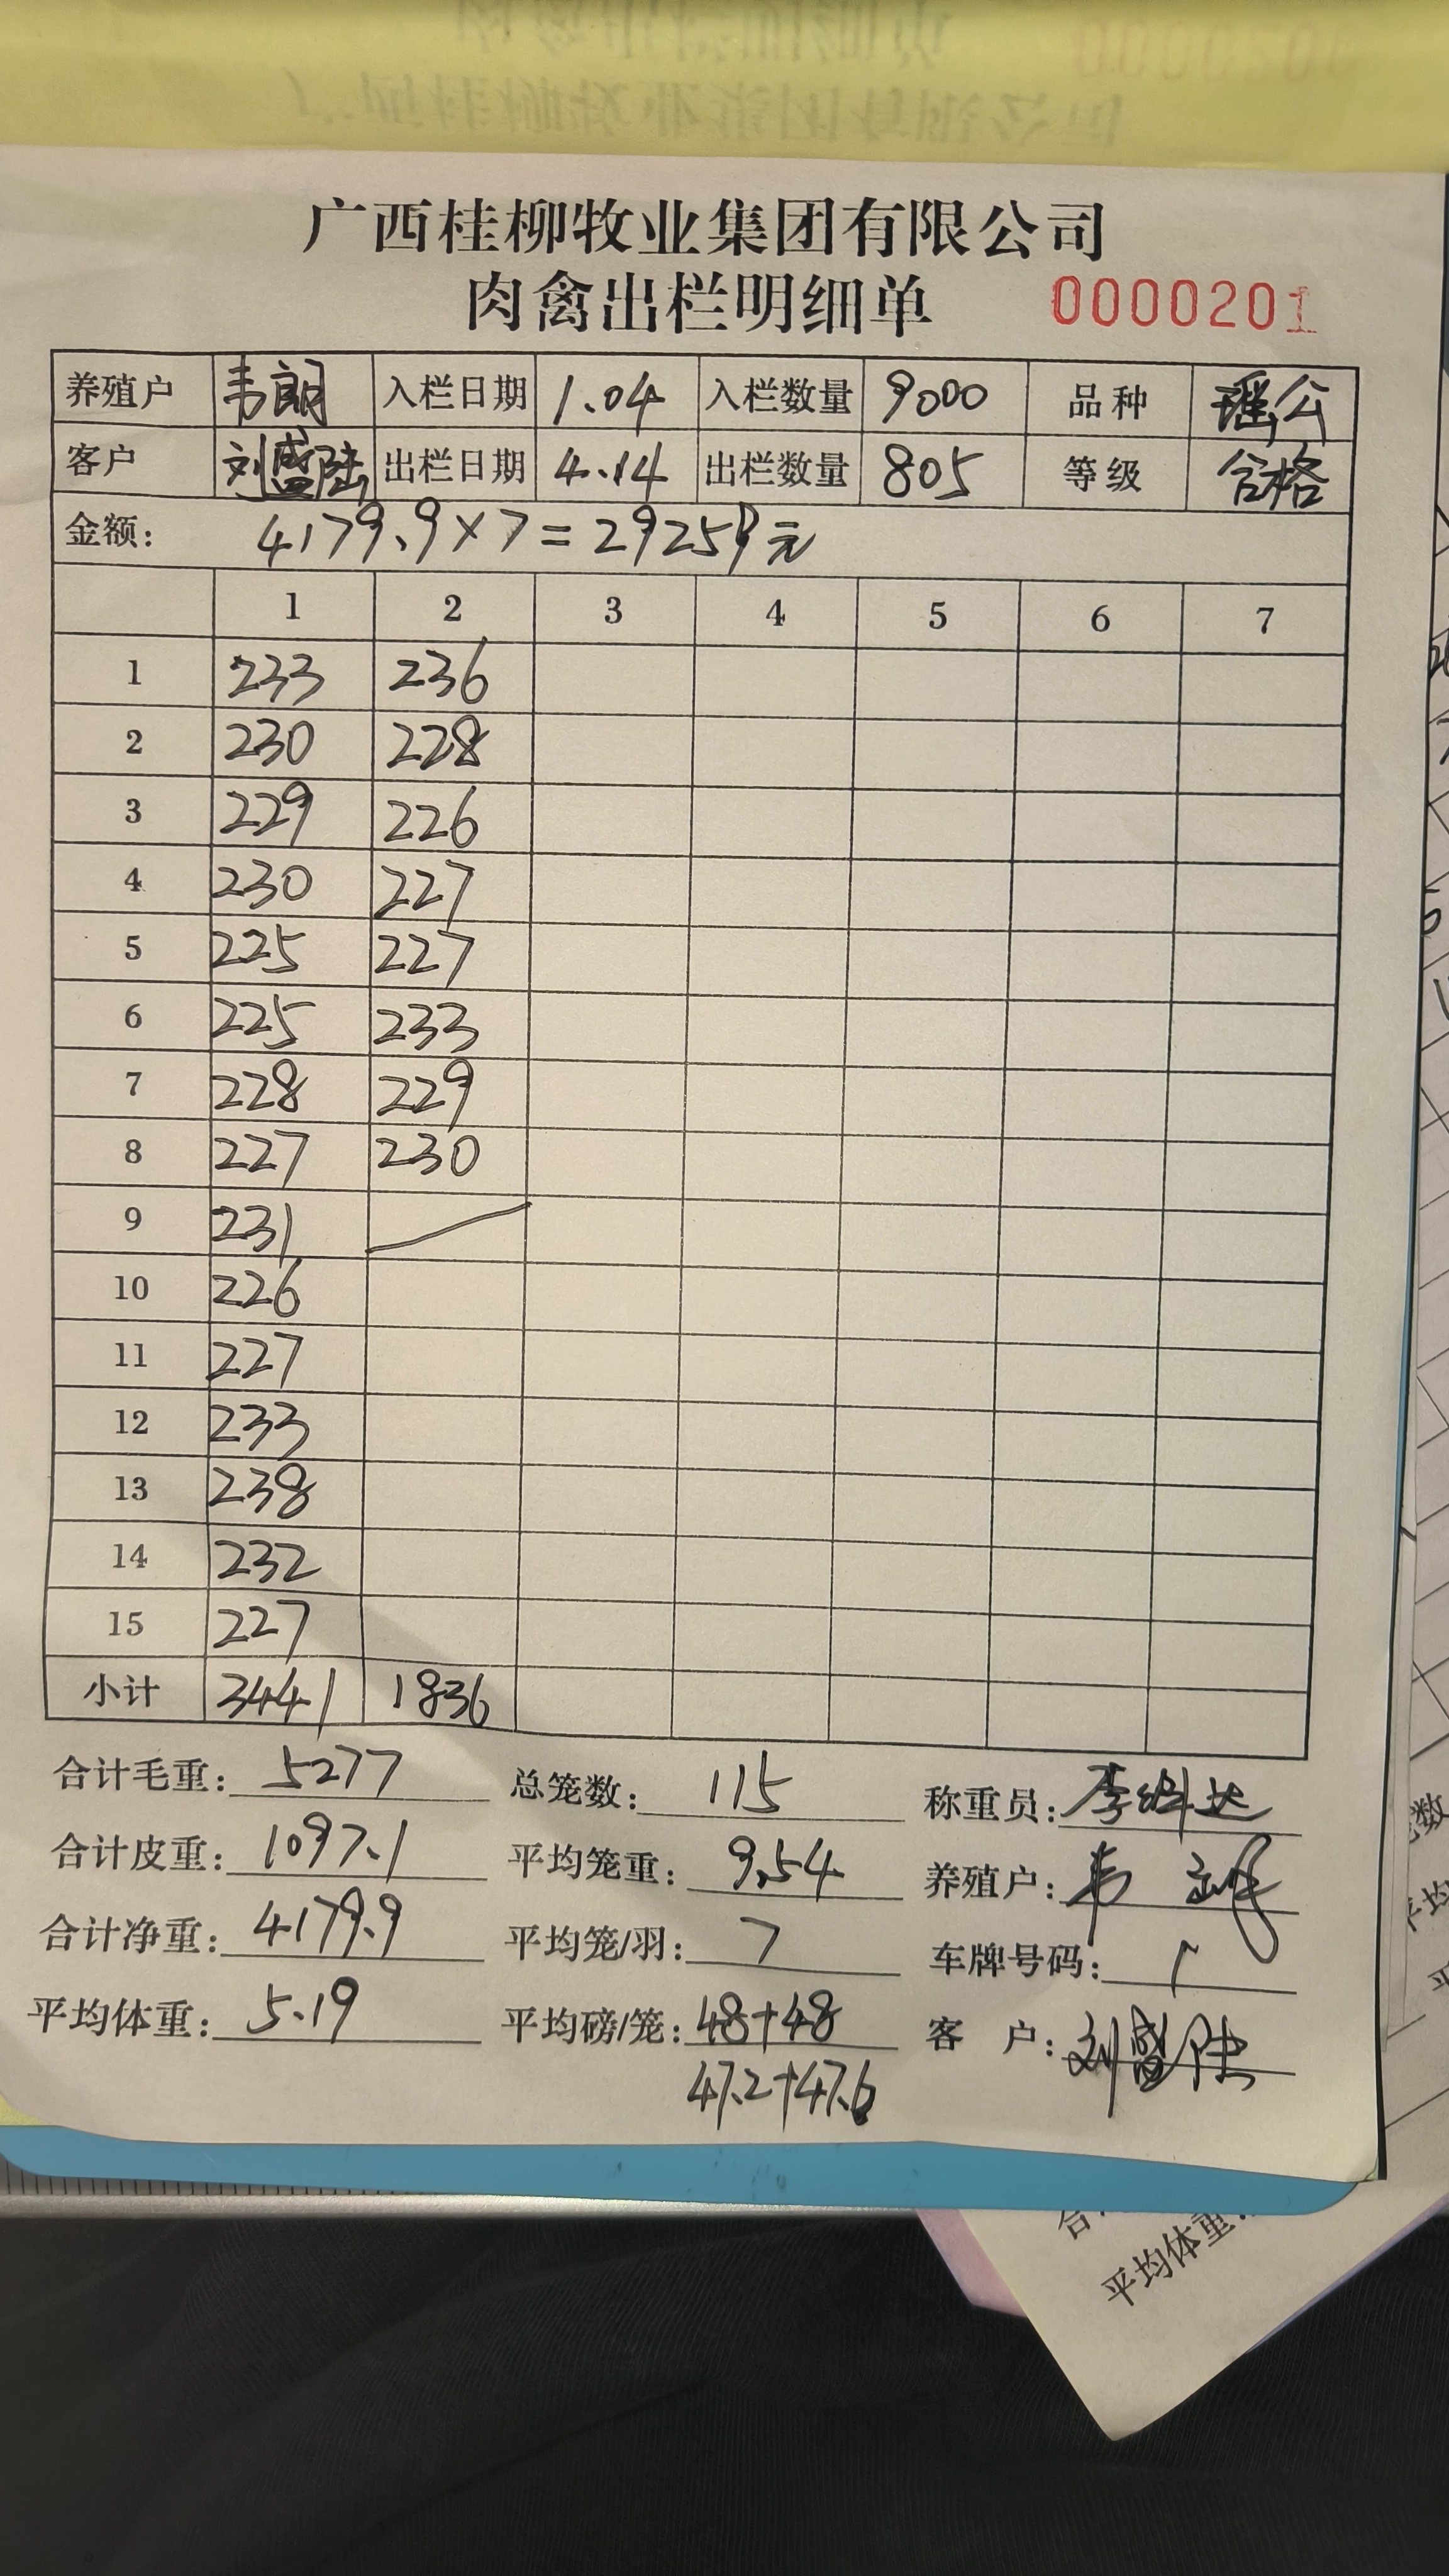 广西桂柳牧业集团有限公司
肉禽出栏明细单 0000201
养殖户 韦朗 入栏日期 1.04 入栏数量 9000 品种 瑶公
客户 刘盛陆 出栏日期 4.14 出栏数量 805 等级 合格
金额: 4179.9×7=29259元
1 2 3 4 5 6 7
1 233 236
2 230 228
3 229 226
4 230 227
5 225 227
6 225 233
7 228 229
8 227 230
9 231
10 226
11 227
12 233
13 238
14 232
15 227
小计 3441 1836
合计毛重: 5277 总笼数: 115 称重员: 李
合计皮重: 1097.1 平均笼重: 9.54 养殖户: 韦
合计净重: 4179.9 平均笼/羽: 7 车牌号码:
平均体重: 5.19 平均磅/笼: 48+48 客 户: 刘盛陆
47.2+47.6
平均体重: